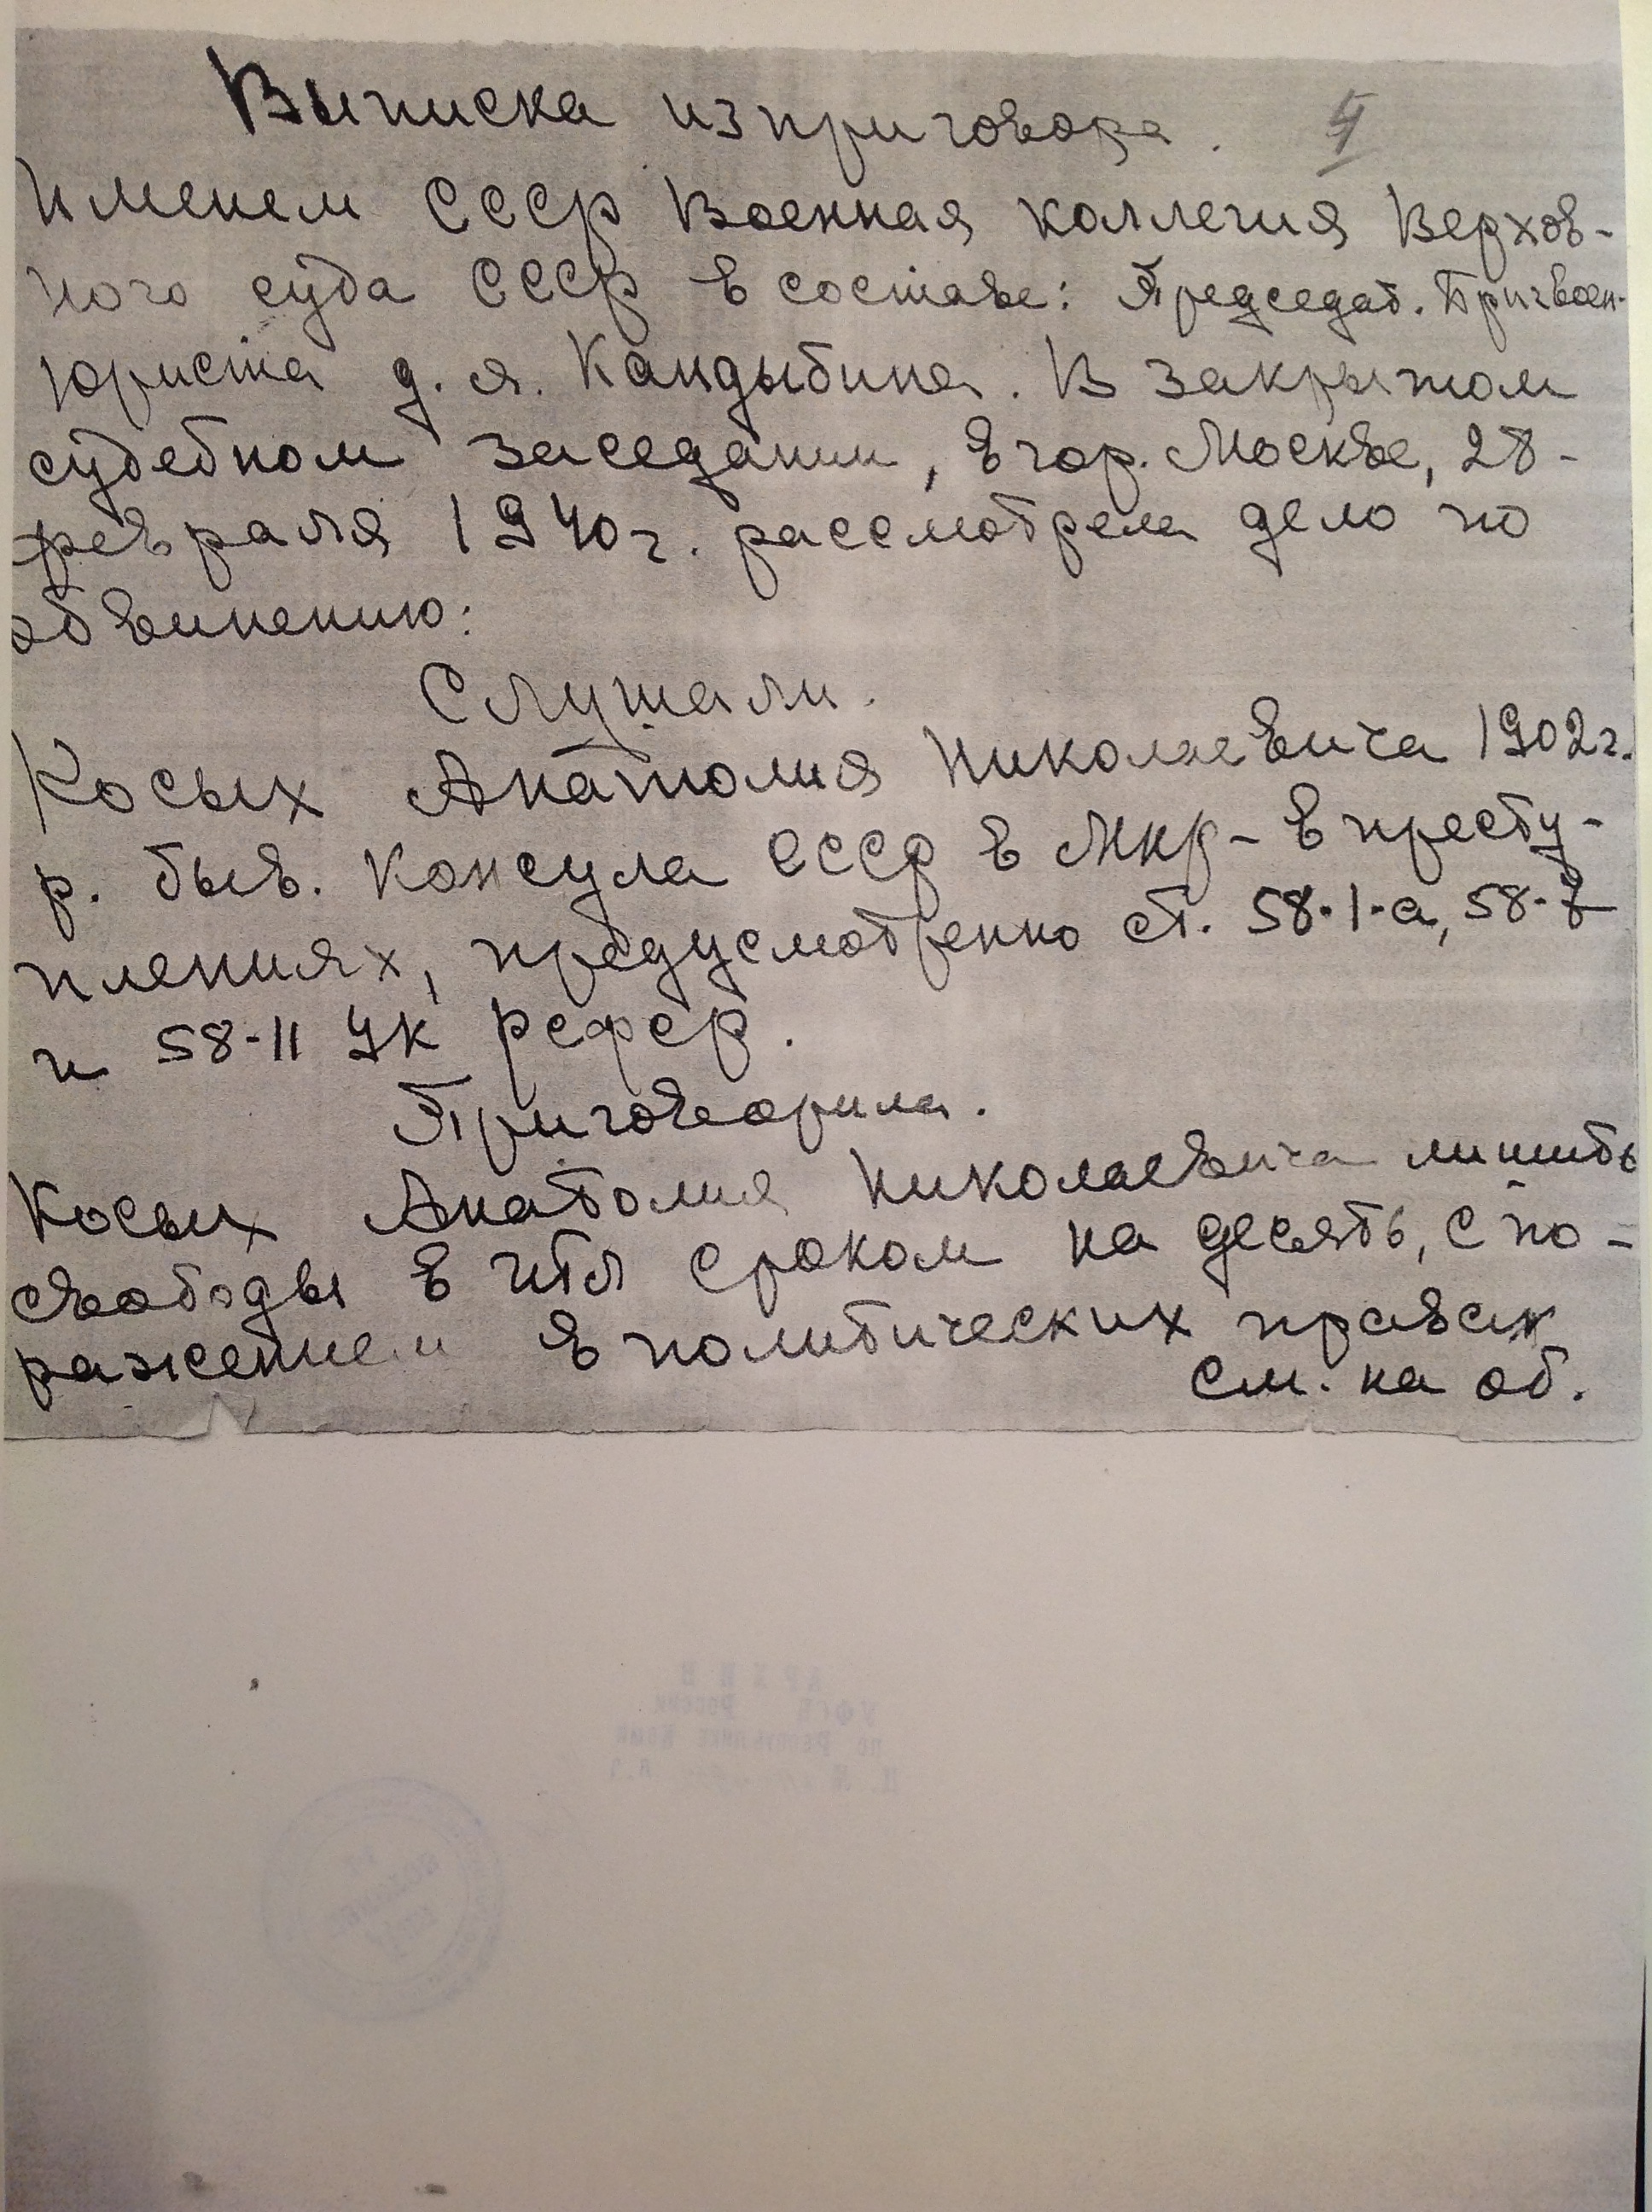 Выписка из приговора. 4
Именем СССР Военная коллегия Верхов-
ного суда СССР в составе: Председат. Бригвоен-
юриста Д. Я. Кандыбина. В закрытом
судебном заседании, в гор. Москве, 28-
февраля 1940 г. рассмотрела дело по
обвинению:
Слушали.
Косых Анатолия Николаевича 1902 г.
р. быв. консула СССР в МНР - в престу-
плениях, предусмотренно ст. 58-1-а, 58-7
и 58-11 УК РСФСР.
Приговорила.
Косых Анатолия Николаевича лишить
свободы в ИТЛ сроком на десять, с по-
ражением в политических правах
см. на об.
АРХИВ
УФСБ России
по Республике Коми